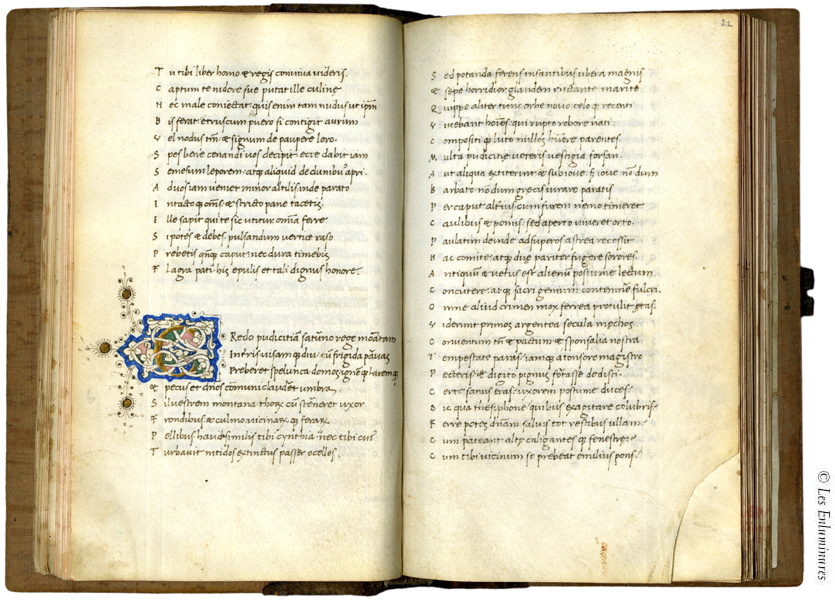 T u tibi liber homo & regis conuiua uideris.
C aptum te nidore sue putat ille culine
N ec male coniectat: quis enim tam nudus ut ipm
B is ferat: etruscum puero si contigit aurum
V el nodus tm̄: & signum de paupere loro.
S pes bene cenandi uos decipit: ecce dabit iam
S emesum leporem: atq aliquid de clunibus apri.
A d uos iam ueniet minor altilis: inde parato
I ntactoq om̄s: & stricto pane tacetis.
I lle sapit qui te sic utitur. omnia ferre
S i potes & debes. pulsandum uertice raso
P rebebis qn̄q caput: nec dura timebis
F lagra pati: his epulis et tali dignus honore.
C Redo pudicitiā saturno rege moratam
In terris uisamq diu: cū frigida paruas
Preberet spelunca domos: ignēq laremq
& pecus et dnōs cōmuni clauderet umbra.
S iluestrem montana thorū cū sterneret uxor
F rondibus & culmo: uicinarūq ferarū
P ellibus: haud similis tibi cynthia: nec tibi cuiꝰ
T urbauit nitidos extinctus passer ocellos.
22
S ed potanda ferens infantibus ubera magnis
& sepe horridior glandem ructante marito
Q uippe aliter tunc orbe nouo celoq recenti
V iuebant hoīes: qui rupto robore nati
C ompositiq luto nullos habuere parentes.
M ulta pudicitie ueteris uestigia forsan.
A ut aliqua extiterint & sub ioue. s; ioue nōdum
B arbato: nōdum grecis iurare paratis
P er caput alterius: cum furem nemo timeret
C aulibus & pomis: sed aperto uiueret orto.
P aulatim deinde ad superos astrea recessit
H ac comite: atq due pariter fugere sorores
A ntiquū & uetus est alienū postume lectum
C oncutere. atq sacri genium contemnere fulcri.
O mne aliud crimen mox ferrea protulit etas.
V iderunt primos argentea secula mechos.
C onuentum tn̄ & pactum & sponsalia nostra
T empestate paras: iamq a tonsore magistro
P ecteris: & digito pignus fortasse dedisti.
C erte sanus eras: uxorem postume ducis?
D ic qua thesiphone: quibus exagitare colubris.
F erre potes dnām saluis tot restibus ullam:
C um pateant alte caligantesq fenestre:
C um tibi uicinum se prebeat emilius pons.
© Les Enluminures